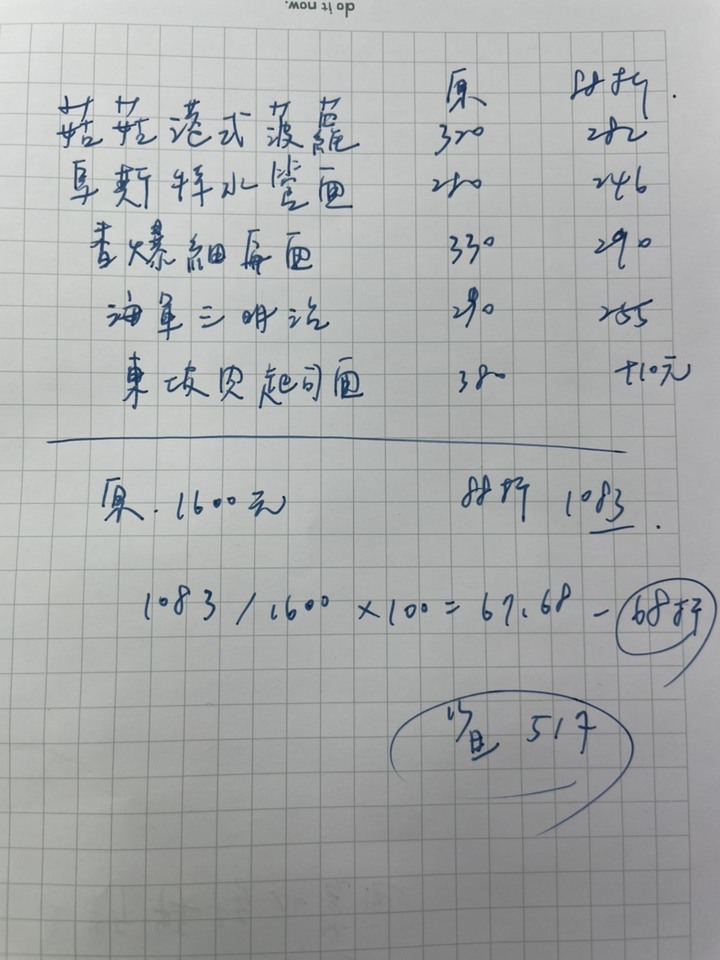 do it now.
原 88折.
菇菇港式菠蘿 320 282
阜斯特水管面 280 246
香爆細扁面 330 290
海軍三明治 290 255
東坡肉起司面 380 +10元
原.1600元 88折 1083.
1083/1600×100=67.68-68折
省 517